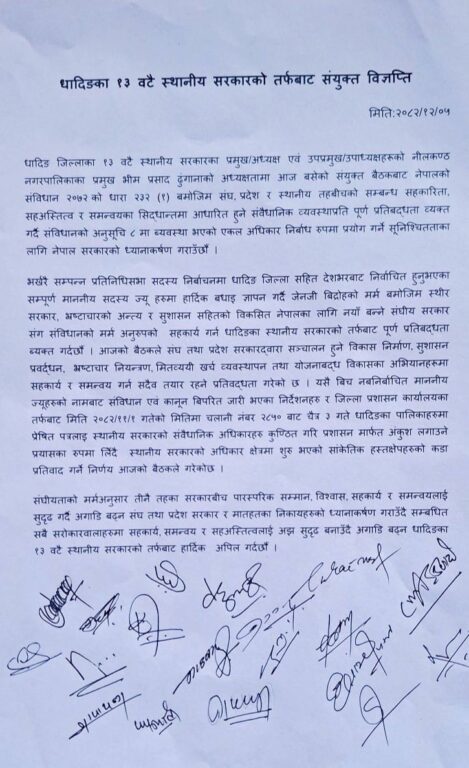 धादिङका १३ वटै स्थानीय सरकारको तर्फबाट संयुक्त विज्ञप्ति
मिति:२०८२/१२/०५
धादिङ जिल्लाका १३ वटै स्थानीय सरकारका प्रमुख/अध्यक्ष एवं उपप्रमुख/उपाध्यक्षहरूको नीलकण्ठ
नगरपालिकाका प्रमुख भीम प्रसाद ढुंगानाको अध्यक्षतामा आज बसेको संयुक्त बैठकबाट नेपालको
संविधान २०७२ को धारा २३२ (१) बमोजिम संघ, प्रदेश र स्थानीय तहबीचको सम्बन्ध सहकारिता,
सहअस्तित्व र समन्वयका सिद्धान्तमा आधारित हुने संवैधानिक व्यवस्थाप्रति पूर्ण प्रतिबद्धता व्यक्त
गर्दै संविधानको अनुसूचि ८ मा ब्यवस्था भएको एकल अधिकार निर्बाध रुपमा प्रयोग गर्ने सूनिश्चितताका
लागि नेपाल सरकारको ध्यानाकर्षण गराउँछौं ।
भर्खरै सम्पन्न प्रतिनिधिसभा सदस्य निर्बाचनमा धादिङ जिल्ला सहित देशभरबाट निर्वाचित हुनुभएका
सम्पूर्ण माननीय सदस्य ज्यू हरुमा हार्दिक बधाइ ज्ञापन गर्दै जेनजी बिद्रोहको मर्म बमोजिम स्थीर
सरकार, भ्रष्टाचारको अन्त्य र सुशासन सहितको विकसित नेपालका लागि नयाँ बन्ने संघीय सरकार
संग संविधानको मर्म अनुरुपको सहकार्य गर्न धादिङका स्थानीय सरकारको तर्फबाट पूर्ण प्रतिबद्धता
ब्यक्त गर्दछौं । आजको बैठकले संघ तथा प्रदेश सरकारद्वारा सञ्चालन हुने विकास निर्माण, सुशासन
प्रवर्द्धन, भ्रष्टाचार नियन्त्रण, मितव्ययी खर्च व्यवस्थापन तथा योजनाबद्ध विकासका अभियानहरूमा
सहकार्य र समन्वय गर्न सदैव तयार रहने प्रतिवद्धता गरेको छ । यसै बिच नबनिर्बाचित माननीय
ज्यूहरुको नामबाट संविधान एवं कानून बिपरित जारी भएका निर्देशनहरु र जिल्ला प्रशासन कार्यालयका
तर्फबाट मिति २०८२/११/१ गतेको मितिमा चलानी नंबर २८५० बाट चैत्र ३ गते धादिङका पालिकाहरुमा
प्रेषित पत्रलाइ स्थानीय सरकारको संवैधानिक अधिकारहरु कुण्ठित गरि प्रशासन मार्फत अंकुश लगाउने
प्रयासका रुपमा लिँदै स्थानीय सरकारको अधिकार क्षेत्रमा शुरु भएको सांकेतिक हस्तक्षेपहरुको कडा
प्रतिवाद गर्ने निर्णय आजको बैठकले गरेकोछ ।
संघीयताको मर्मअनुसार तीनै तहका सरकारबीच पारस्परिक सम्मान, विश्वास, सहकार्य र समन्वयलाई
सुदृढ गर्दै अगाडि बढ्न संघ तथा प्रदेश सरकार र मातहतका निकायहरुको ध्यानाकर्षण गराउँदै सम्बधित
सबै सरोकारवालाहरुमा सहकार्य, समन्वय र सहअस्तित्वलाई अझ सुदृढ बनाउँदै अगाडि बढ्न धादिङका
१३ वटै स्थानीय सरकारको तर्फबाट हार्दिक अपिल गर्दछौं ।